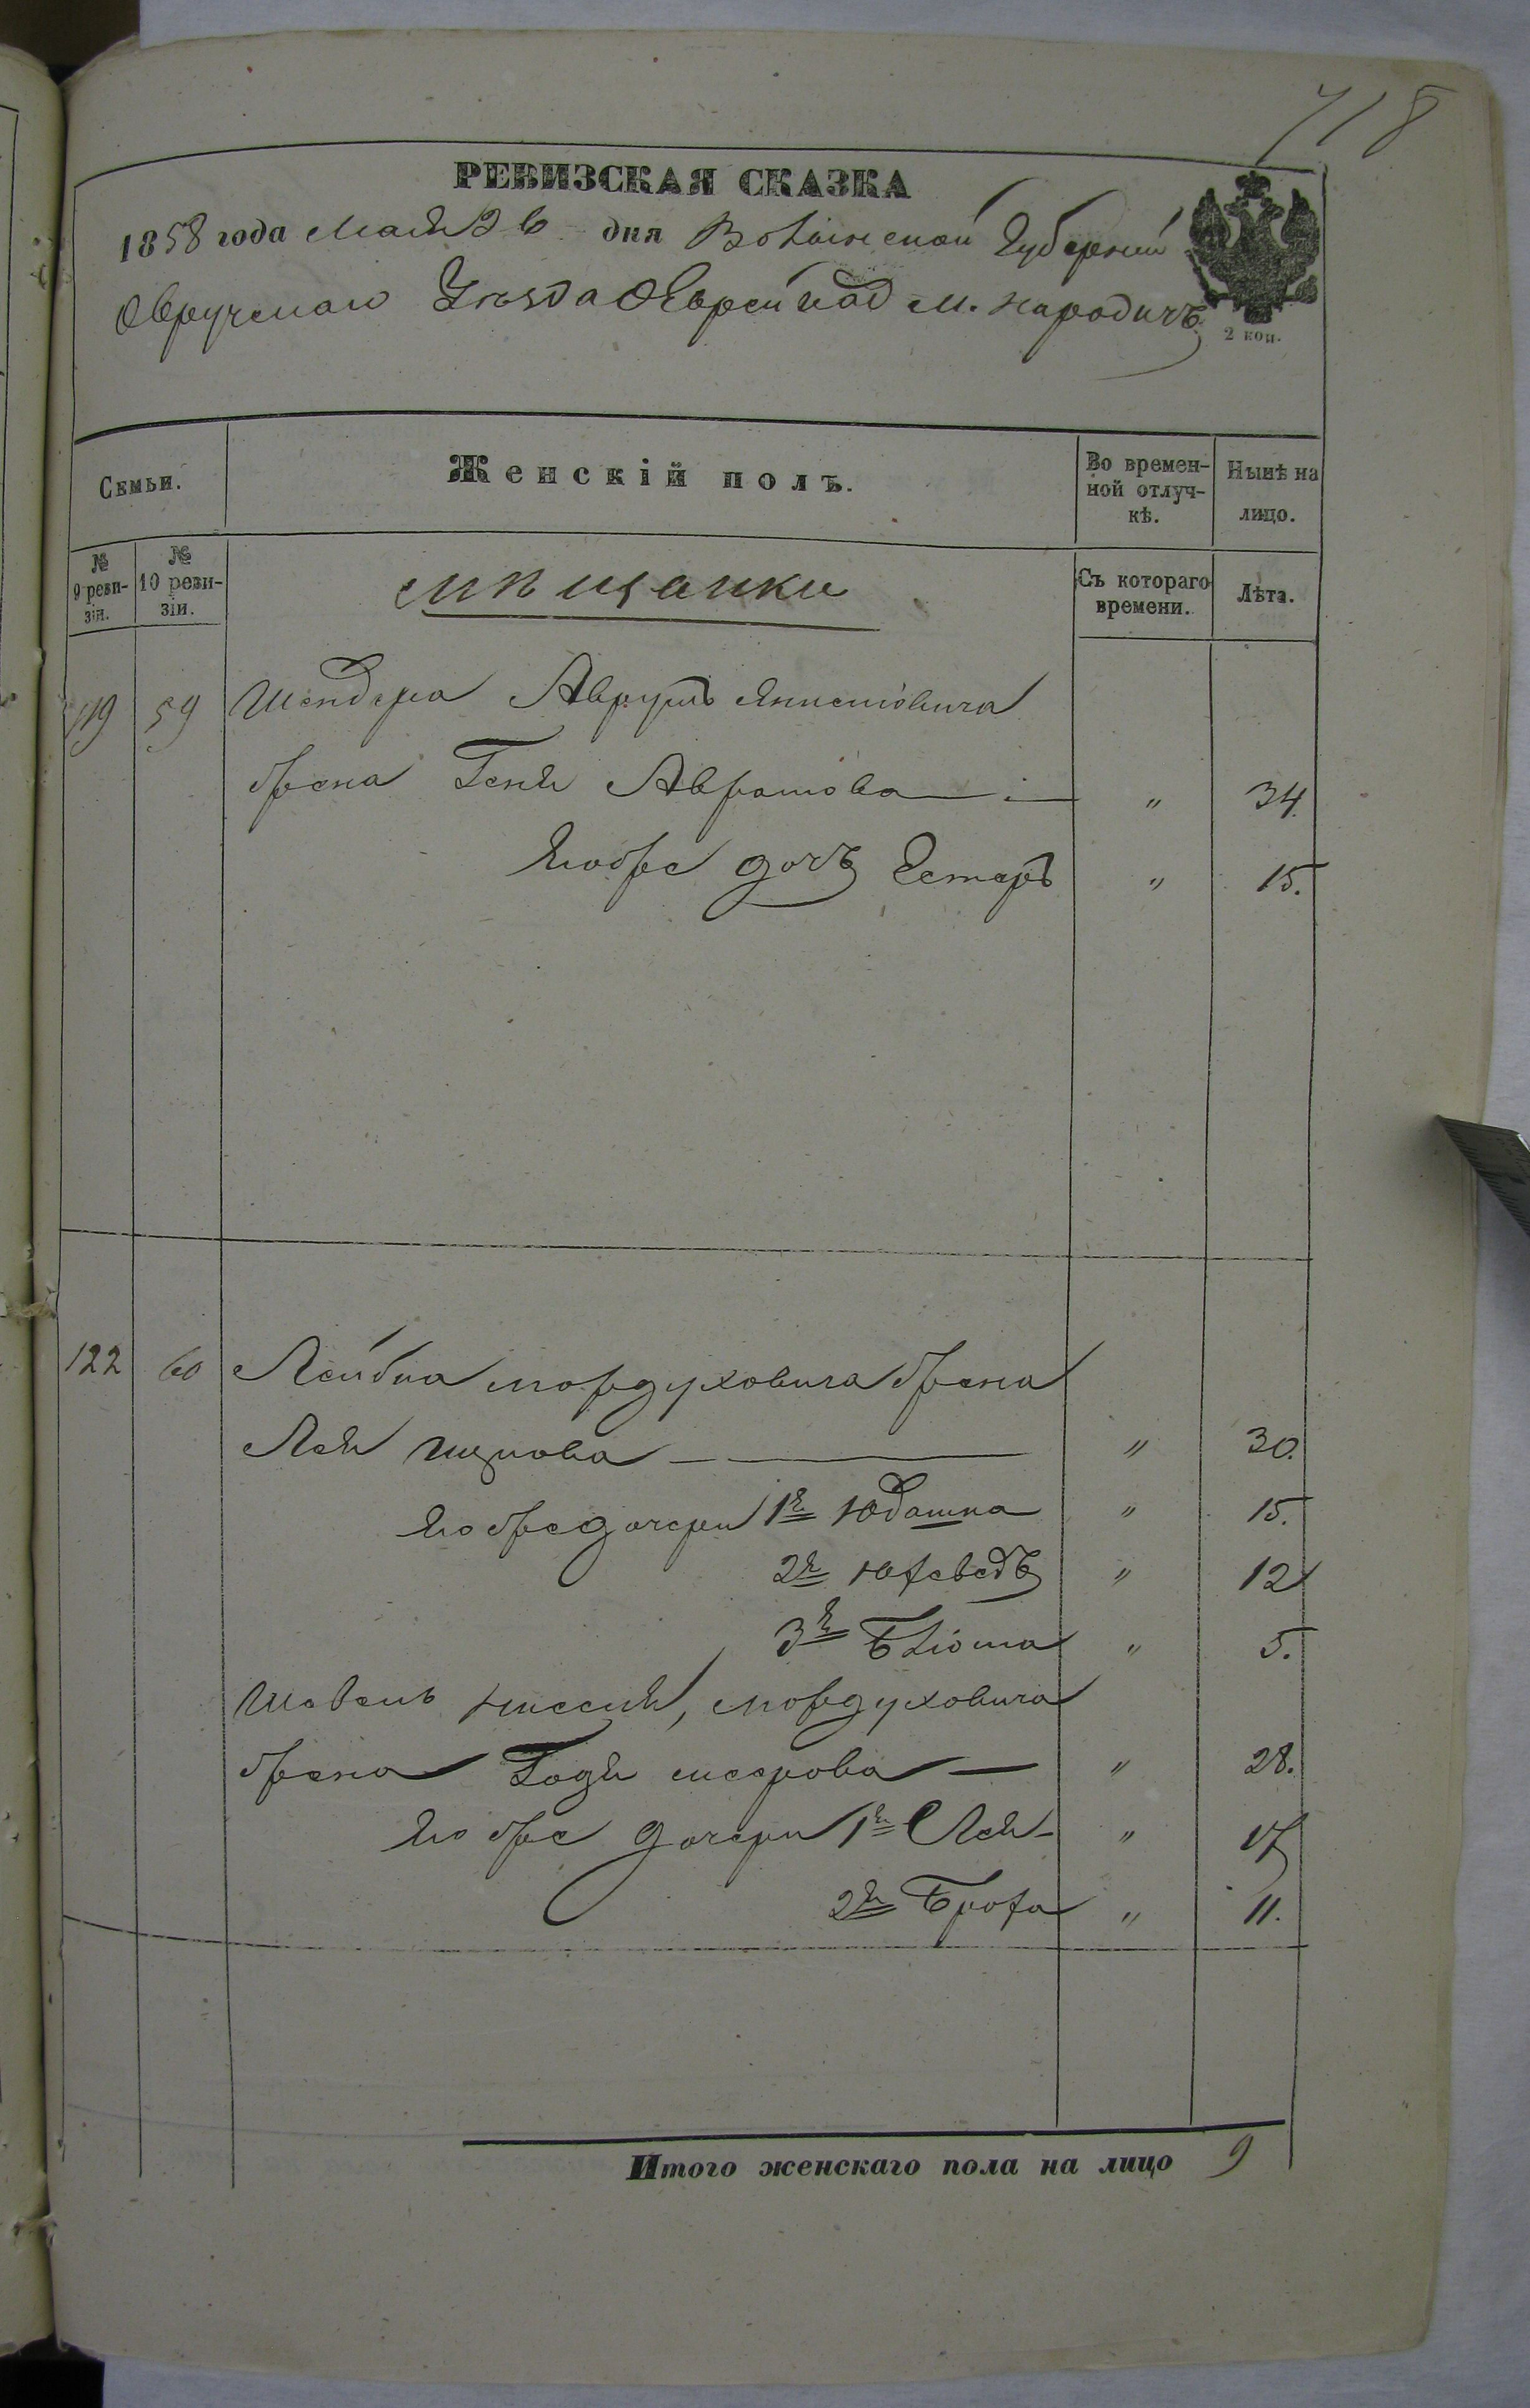 718
РЕВИЗСКАЯ СКАЗКА
1858 года Мая 26 дня Волынской Губерніи
Овручскаго Уѣзда Еврей м. Народичъ
2 коп.
Семьи.
Женскій полъ.
Во времен-
ной отлуч-
кѣ.
Нынѣ на
лицо.
№
9 реви-
зіи.
№
10 реви-
зіи.
Съ котораго
времени.
Лѣта.
мѣщанки
119 59 Шендера Аврумъ
жена Геня Абрамова " 34.
Его же дочь Естеръ " 15.
122 60 Лейбы Мордуховича жена
Лея " 30.
Его же дочери 1я Юдашка " 15.
2я " 12
3я Блюма " 5.
Ниссия, Мордуховича
жена Годя Меерова " 28.
Его же дочери 1я Лея " 17
2я Броха " 11.
Итого женскаго пола на лицо 9